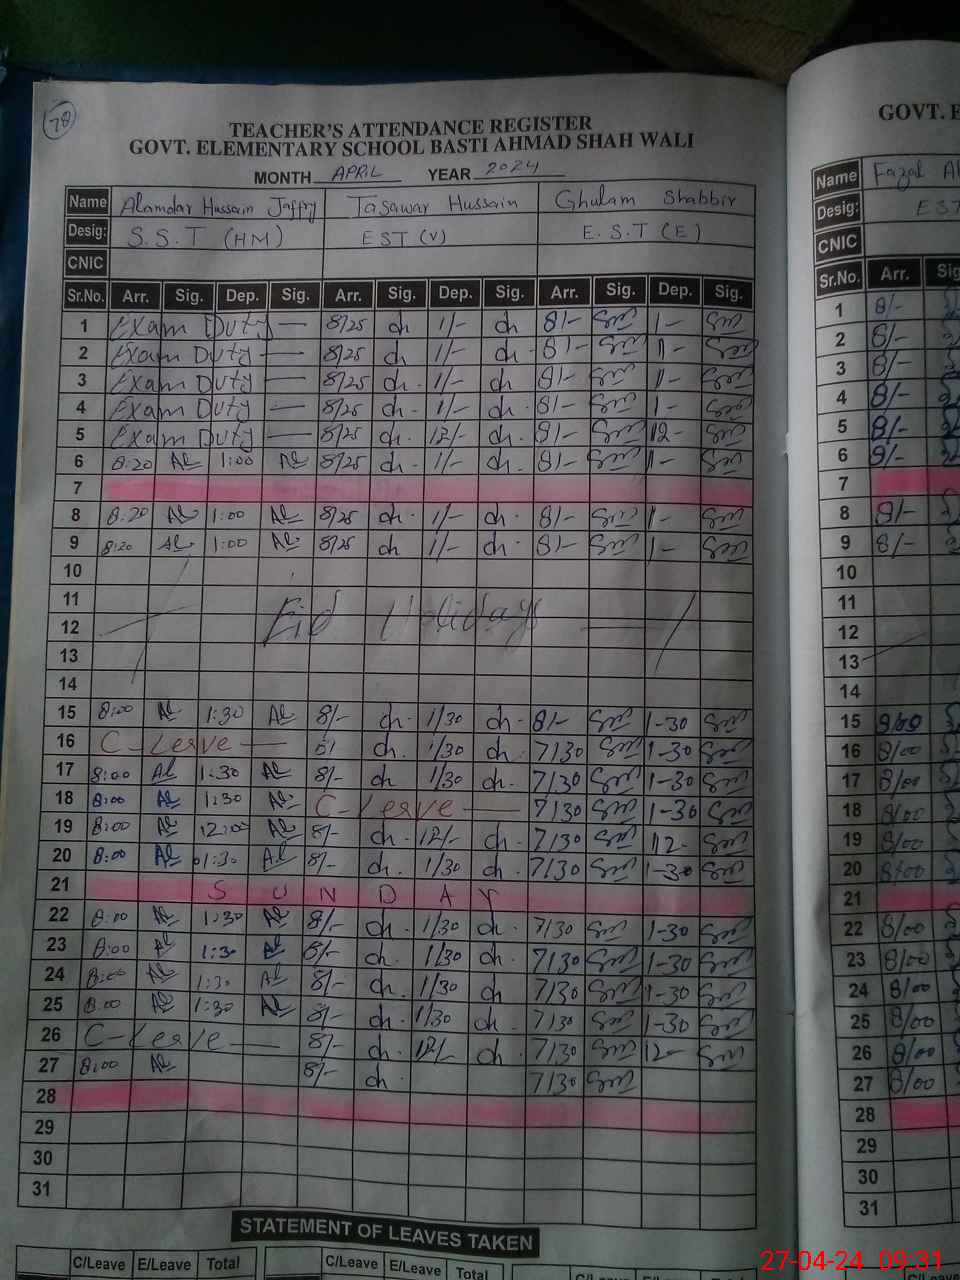 78
TEACHER'S ATTENDANCE REGISTER
GOVT. ELEMENTARY SCHOOL BASTI AHMAD SHAH WALI
MONTH APRIL YEAR 2024
Name Alamdar Hussain Jaffry Tasawar Hussain Ghulam Shabbir
Desig: S.S.T (HM) EST (V) E.S.T (E)
CNIC
Sr.No. Arr. Sig. Dep. Sig. Arr. Sig. Dep. Sig. Arr. Sig. Dep. Sig.
1 Exam Duty — 8/25 ch 1/- ch 8/- 1-
2 Exam Duty — 8/25 ch 1/- ch. 8/- 1-
3 Exam Duty — 8/25 ch. 1/- ch. 8/- 1-
4 Exam Duty — 8/25 ch. 1/- ch. 8/- 1-
5 Exam Duty — 8/25 ch. 12/- ch. 8/- 12-
6 8:20 1:00 8/25 ch. 1/- ch. 8/- 1-
7
8 8:20 1:00 8/25 ch. 1/- ch. 8/- 1-
9 8:20 1:00 8/25 ch 1/- ch. 8/- 1-
10
11 Eid Holidays
12
13
14
15 8:00 1:30 8/- ch. 1/30 ch. 8/- 1-30
16 C-Leave — 8/ ch. 1/30 ch. 7/30 1-30
17 8:00 1:30 8/- ch. 1/30 ch. 7/30 1-30
18 8:00 1:30 C-Leave — 7/30 1-30
19 8:00 12:00 8/- ch. 12/- ch. 7/30 12-
20 8:00 01:30 8/- ch. 1/30 ch. 7/30 1-30
21 SUNDAY
22 8:00 1:30 8/- ch. 1/30 ch. 7/30 1-30
23 8:00 1:30 8/- ch. 1/30 ch. 7/30 1-30
24 8:00 1:30 8/- ch. 1/30 ch 7/30 1-30
25 8:00 1:30 8/- ch. 1/30 ch. 7/30 1-30
26 C-Leave — 8/- ch. 12/- ch. 7/30 12-
27 8:00 8/- ch. 7/30
28
29
30
31
STATEMENT OF LEAVES TAKEN
C/Leave E/Leave Total C/Leave E/Leave Total
GOVT. E
Name Fazal
Desig: EST
CNIC
Sr.No. Arr. Sig
1 8/-
2 8/-
3 8/-
4 8/-
5 8/-
6 8/-
7
8 8/-
9 8/-
10
11
12
13
14
15 8/00
16 8/00
17 8/00
18 8/00
19 8/00
20 8/00
21
22 8/00
23 8/00
24 8/00
25 8/00
26 8/00
27 8/00
28
29
30
31
27-04-24 09:31